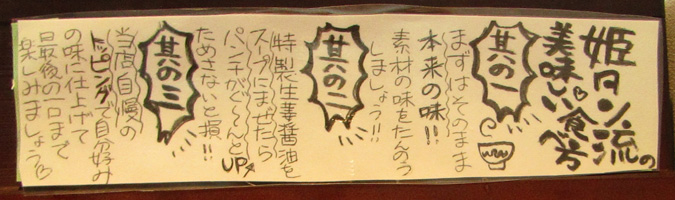 姫タン流の
美味しい食べ方
其の一
まずはそのまま
本来の味!!
素材の味をたんのう
しましょう!!
其の二
特製生姜醤油を
スープにまぜたら
パンチがぐ〜んとUP
ためさないと損!!
其の三
当店自慢の
トッピングで自分好み
の味に仕上げて
最後の一口まで
楽しみましょう♡